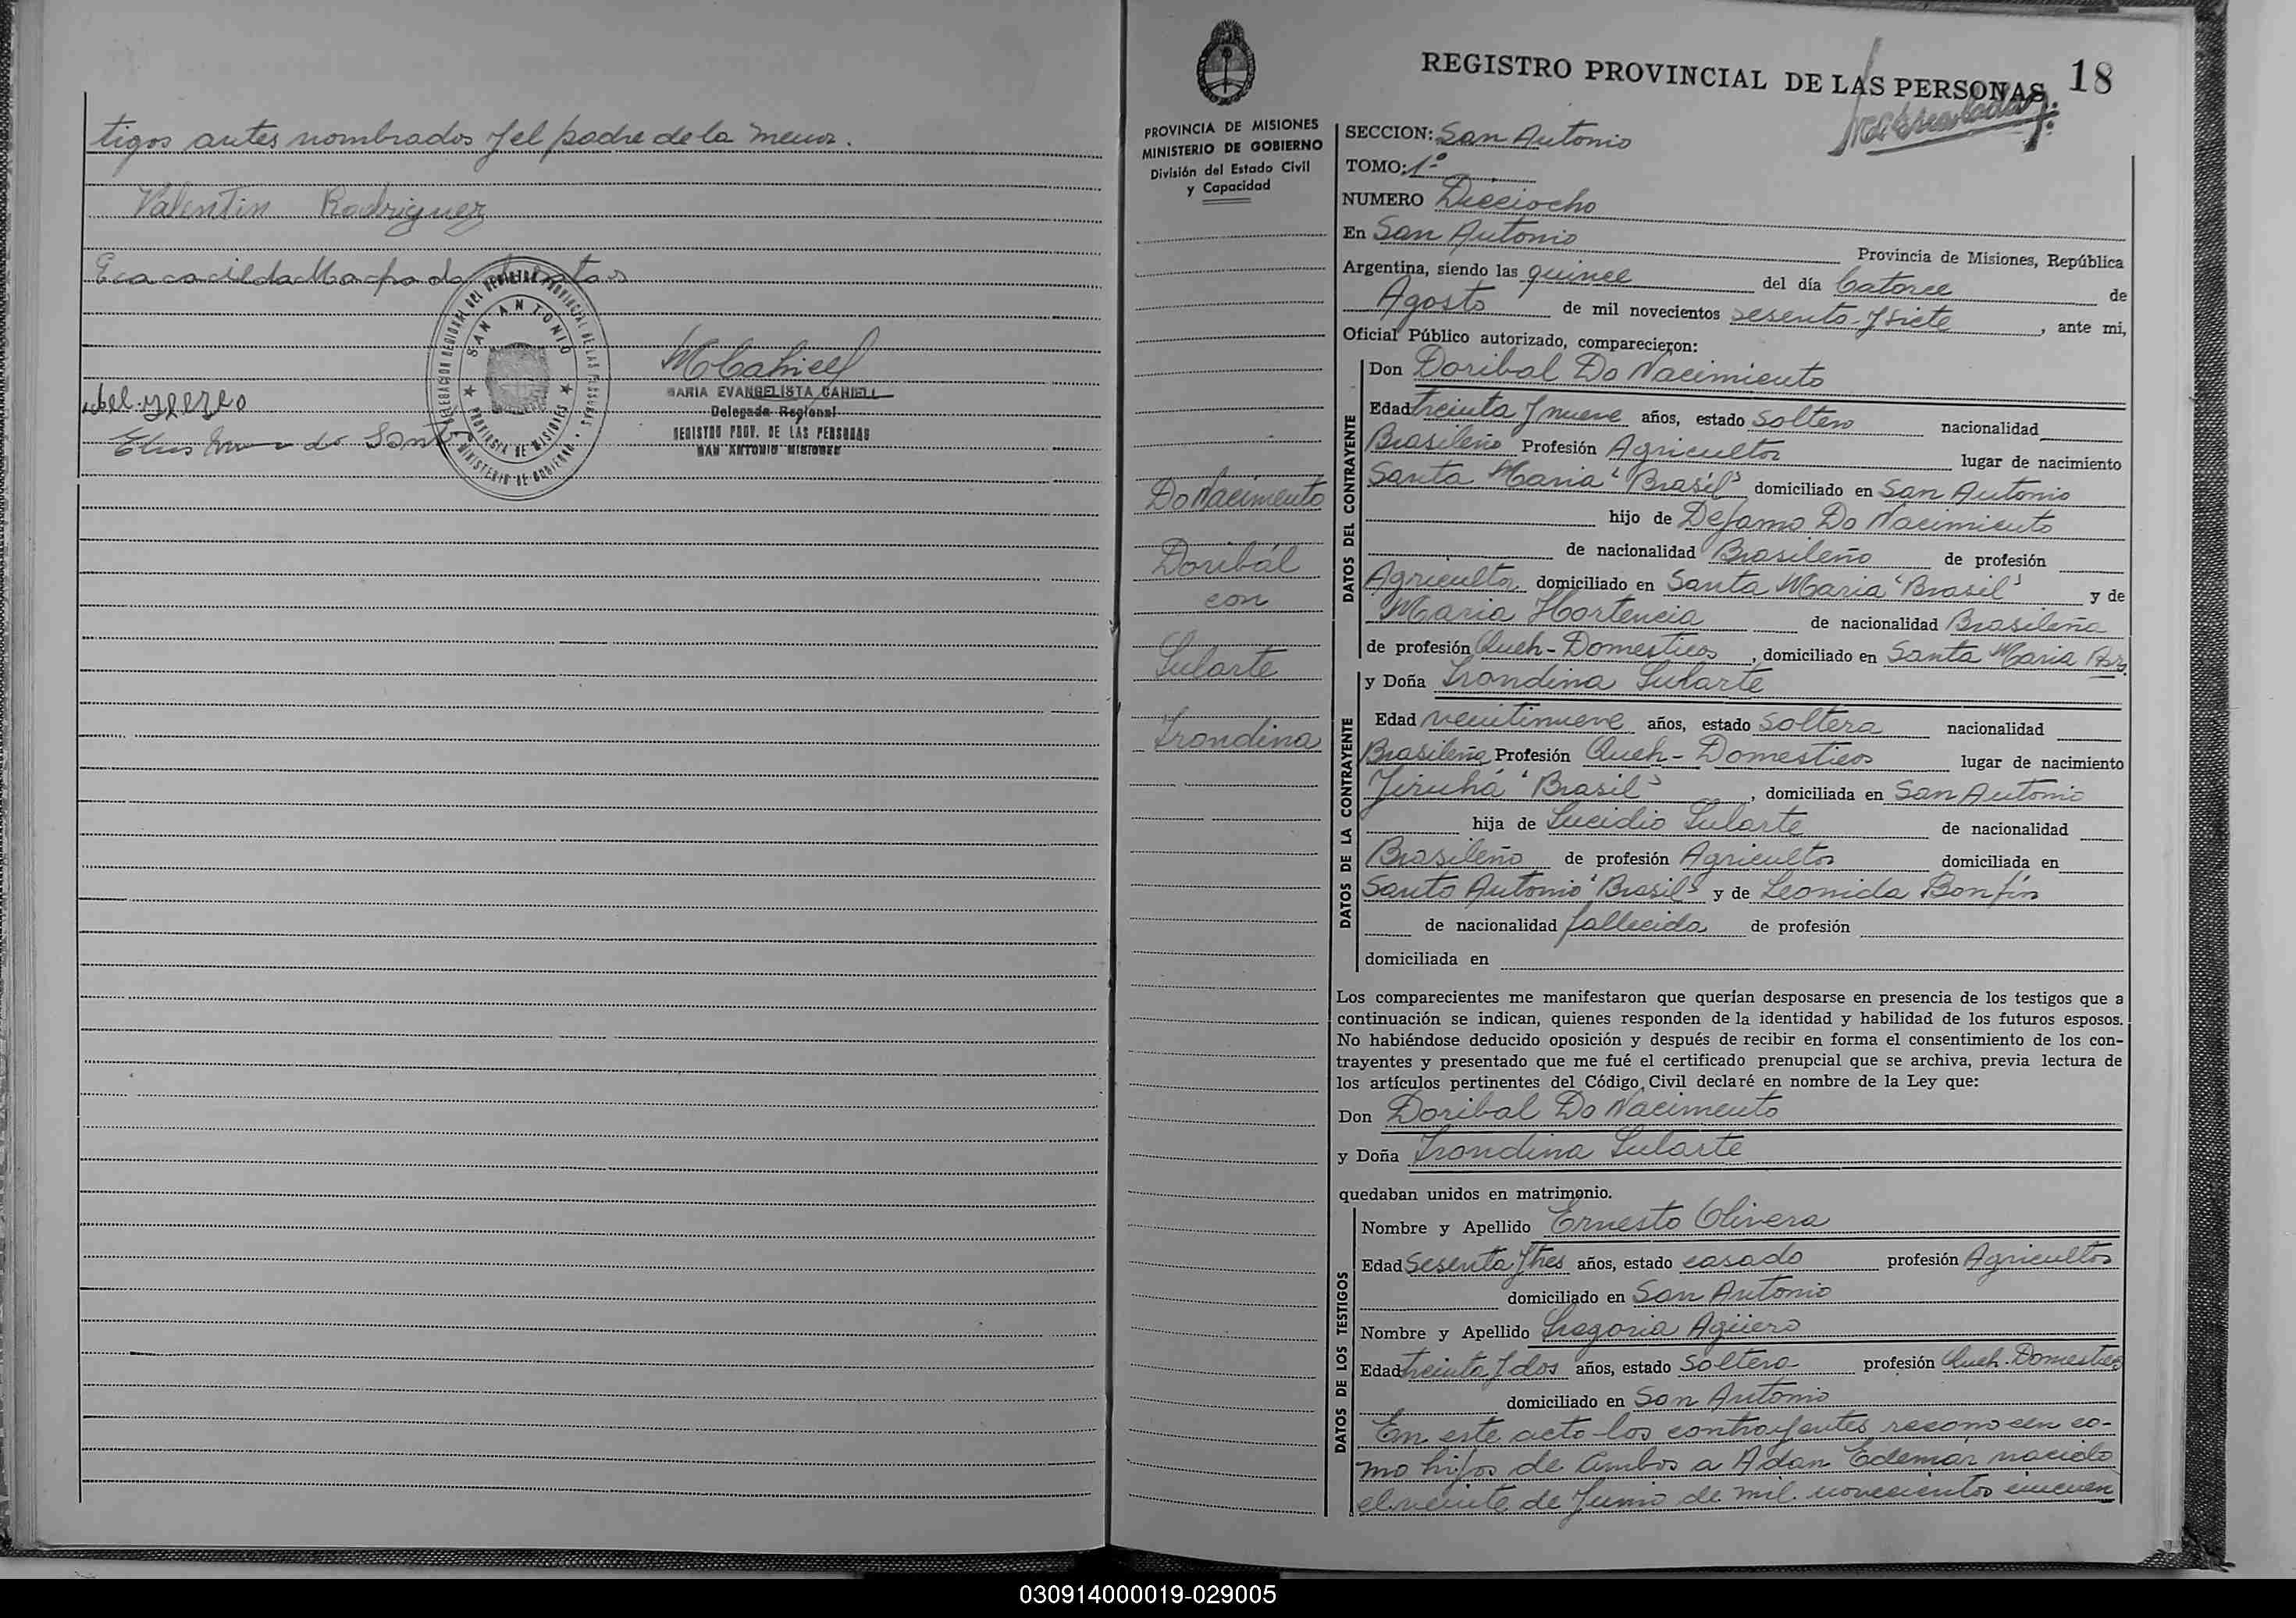 tigos antes nombrados y el padre de la menor.
Valentin Rodriguez
DELEGACION REGIONAL DEL REGISTRO PROVINCIAL DE LAS PERSONAS
SAN ANTONIO
PROVINCIA DE MISIONES
MINISTERIO DE GOBIERNO
MARIA EVANGELISTA CAHIELL
Delegada Regional
REGISTRO PROV. DE LAS PERSONAS
SAN ANTONIO MISIONES
REGISTRO PROVINCIAL DE LAS PERSONAS 18
PROVINCIA DE MISIONES
MINISTERIO DE GOBIERNO
División del Estado Civil
y Capacidad
Do Nacimento
Doribál
con
Sularte
Irondina
SECCION: San Antonio
TOMO: 1º
NUMERO Dieciocho
En San Antonio Provincia de Misiones, República
Argentina, siendo las quince del día Catorce de
Agosto de mil novecientos sesenta y siete, ante mi,
Oficial Público autorizado, comparecieron:
DATOS DEL CONTRAYENTE
Don Doribal Do Nacimiento
Edad treinta y nueve años, estado Soltero nacionalidad
Brasileño Profesión Agricultor lugar de nacimiento
Santa Maria "Brasil" domiciliado en San Antonio
hijo de Dejamo Do Nacimiento
de nacionalidad Brasileño de profesión
Agricultor domiciliado en Santa Maria "Brasil" y de
Maria Hortencia de nacionalidad Brasileña
de profesión Queh-Domesticos, domiciliado en Santa Maria Bra.
DATOS DE LA CONTRAYENTE
y Doña Irondina Sularte
Edad veintinueve años, estado Soltera nacionalidad
Brasileña Profesión Queh-Domesticos lugar de nacimiento
"Brasil", domiciliada en San Antonio
hija de Lucidio Sularte de nacionalidad
Brasileño de profesión Agricultor domiciliada en
Santo Antonio "Brasil" y de Leonida Bonfin
de nacionalidad fallecida de profesión
domiciliada en
Los comparecientes me manifestaron que querían desposarse en presencia de los testigos que a
continuación se indican, quienes responden de la identidad y habilidad de los futuros esposos.
No habiéndose deducido oposición y después de recibir en forma el consentimiento de los con-
trayentes y presentado que me fué el certificado prenupcial que se archiva, previa lectura de
los artículos pertinentes del Código Civil declaré en nombre de la Ley que:
Don Doribal Do Nacimento
y Doña Irondina Sularte
quedaban unidos en matrimonio.
DATOS DE LOS TESTIGOS
Nombre y Apellido Ernesto Olivera
Edad Sesenta y tres años, estado casado profesión Agricultor
domiciliado en San Antonio
Nombre y Apellido Gregoria Agüero
Edad treinta y dos años, estado Soltera profesión Queh-Domesticos
domiciliado en San Antonio
En este acto los contrayentes reconocen co-
mo hijos de ambos a Adan Edemar nacido
el veinte de Junio de mil novecientos cincuen
030914000019-029005